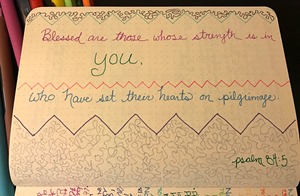 Blessed are those whose strength is in
you,
who have set their hearts on pilgrimage.
psalm 84:5